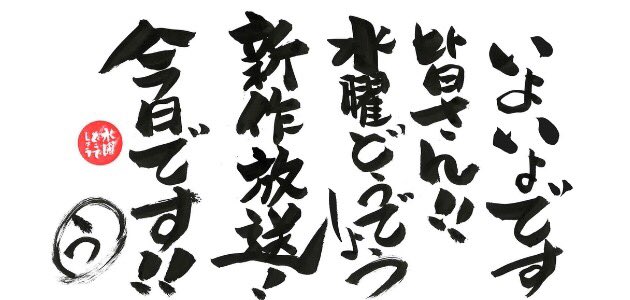 いよいよです
皆さん!!
水曜どうでしょう
新作放送!
今日です!!
水曜
どうで
しょう
う